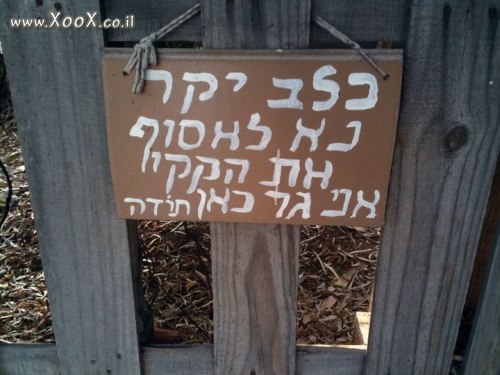 www.XooX.co.il
כלב יקר
נא לאסוף
את הקקי
אני גר כאן תודה